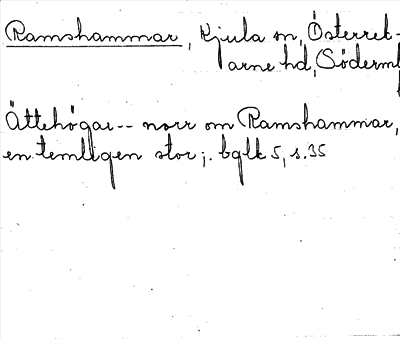 Ramshammar, Kjula sn, Österrek-
arne hd, Söderml
Ättehögar -- norr om Ramshammar,
en temligen stor;. bglk 5, s. 35